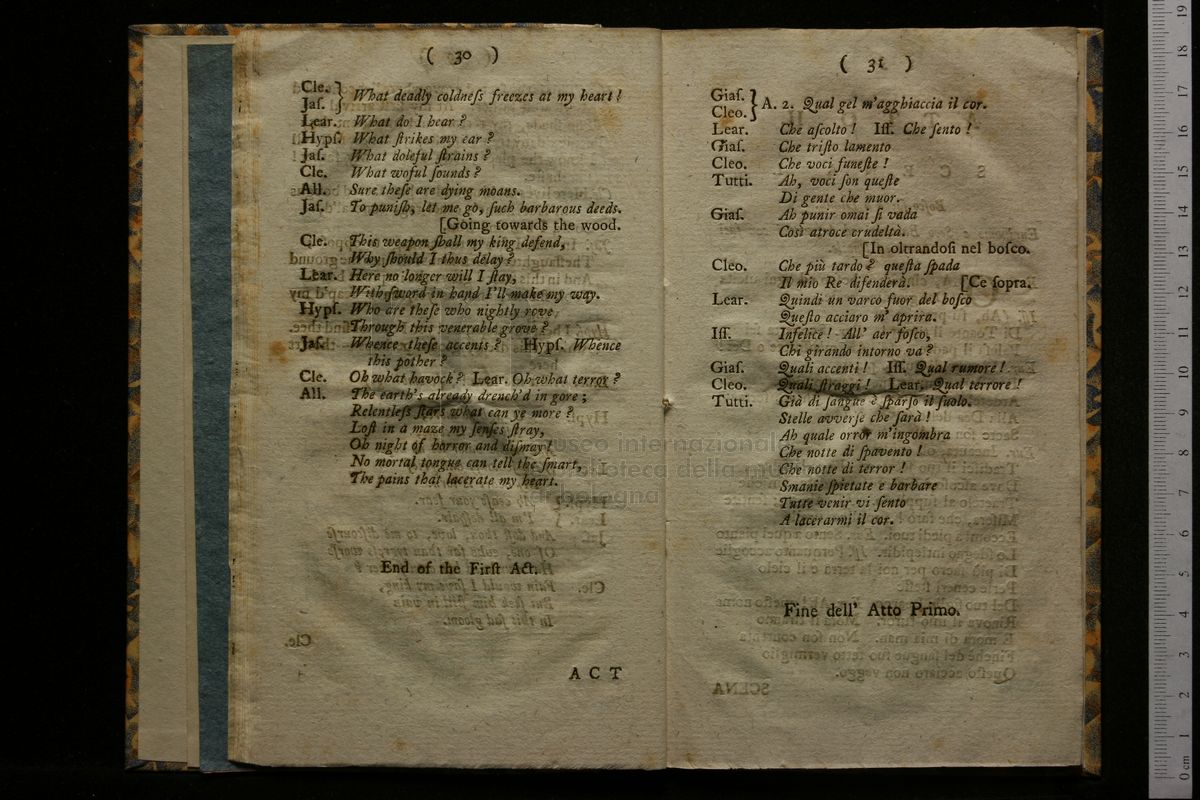 ( 30 )
Cle. } What deadly coldneſs freezes at my heart !
Jaſ.
Lear. What do I hear ?
Hypſ. What ſtrikes my ear ?
Jaſ. What doleful ſtrains ?
Cle. What woful ſounds ?
All. Sure theſe are dying moans.
Jaſ. To puniſh, let me go, ſuch barbarous deeds.
[Going towards the wood.
Cle. This weapon ſhall my king defend,
Why ſhould I thus delay ?
Lear. Here no longer will I ſtay,
With ſword in hand I'll make my way.
Hypſ. Who are theſe who nightly rove
Through this venerable grove ?
Jaſ. Whence theſe accents ? Hypſ. Whence
this pother ?
Cle. Oh what havock ? Lear. Oh what terror ?
All. The earth's already drench'd in gore ;
Relentleſs ſtars what can ye more ?
Loſt in a maze my ſenſes ſtray,
Oh night of horror and diſmay !
No mortal tongue can tell the ſmart,
The pains that lacerate my heart.
End of the Firſt Act.
ACT
( 31 )
Giaſ. } A. 2. Qual gel m'agghiaccia il cor.
Cleo.
Lear. Che aſcolto ! Iſſ. Che ſento !
Giaſ. Che triſto lamento
Cleo. Che voci funeſte !
Tutti. Ah, voci ſon queſte
Di gente che muor.
Giaſ. Ah punir omai ſi vada
Così atroce crudeltà.
[In oltrandoſi nel boſco.
Cleo. Che più tardo ? queſta ſpada
Il mio Re difenderà. [Ce ſopra.
Lear. Quindi un varco fuor del boſco
Queſto acciaro m' aprira.
Iſſ. Infelice ! All' aer foſco,
Chi girando intorno va ?
Giaſ. Quali accenti ! Iſſ. Qual rumore !
Cleo. Quali ſtraggi ! Lear. Qual terrore !
Tutti. Già di ſangue è ſparſo il ſuolo.
Stelle avverſe che ſarà !
Ah quale orror m'ingombra
Che notte di ſpavento !
Che notte di terror !
Smanie ſpietate e barbare
Tutte venir vi ſento
A lacerarmi il cor.
Fine dell' Atto Primo.